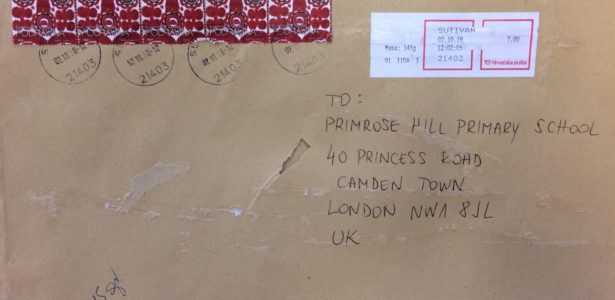 SUTIVAN
02.10.18 7,00
Masa: 145g 12:02:05
91 1106 3 21403
Hrvatska pošta
02.10.18-12
21403
02.10.18-12
21403
02.10.18-12
21403
02.10.18-12
21403
TO:
PRIMROSE HILL PRIMARY SCHOOL
40 PRINCESS ROAD
CAMDEN TOWN
LONDON NW1 8JL
UK